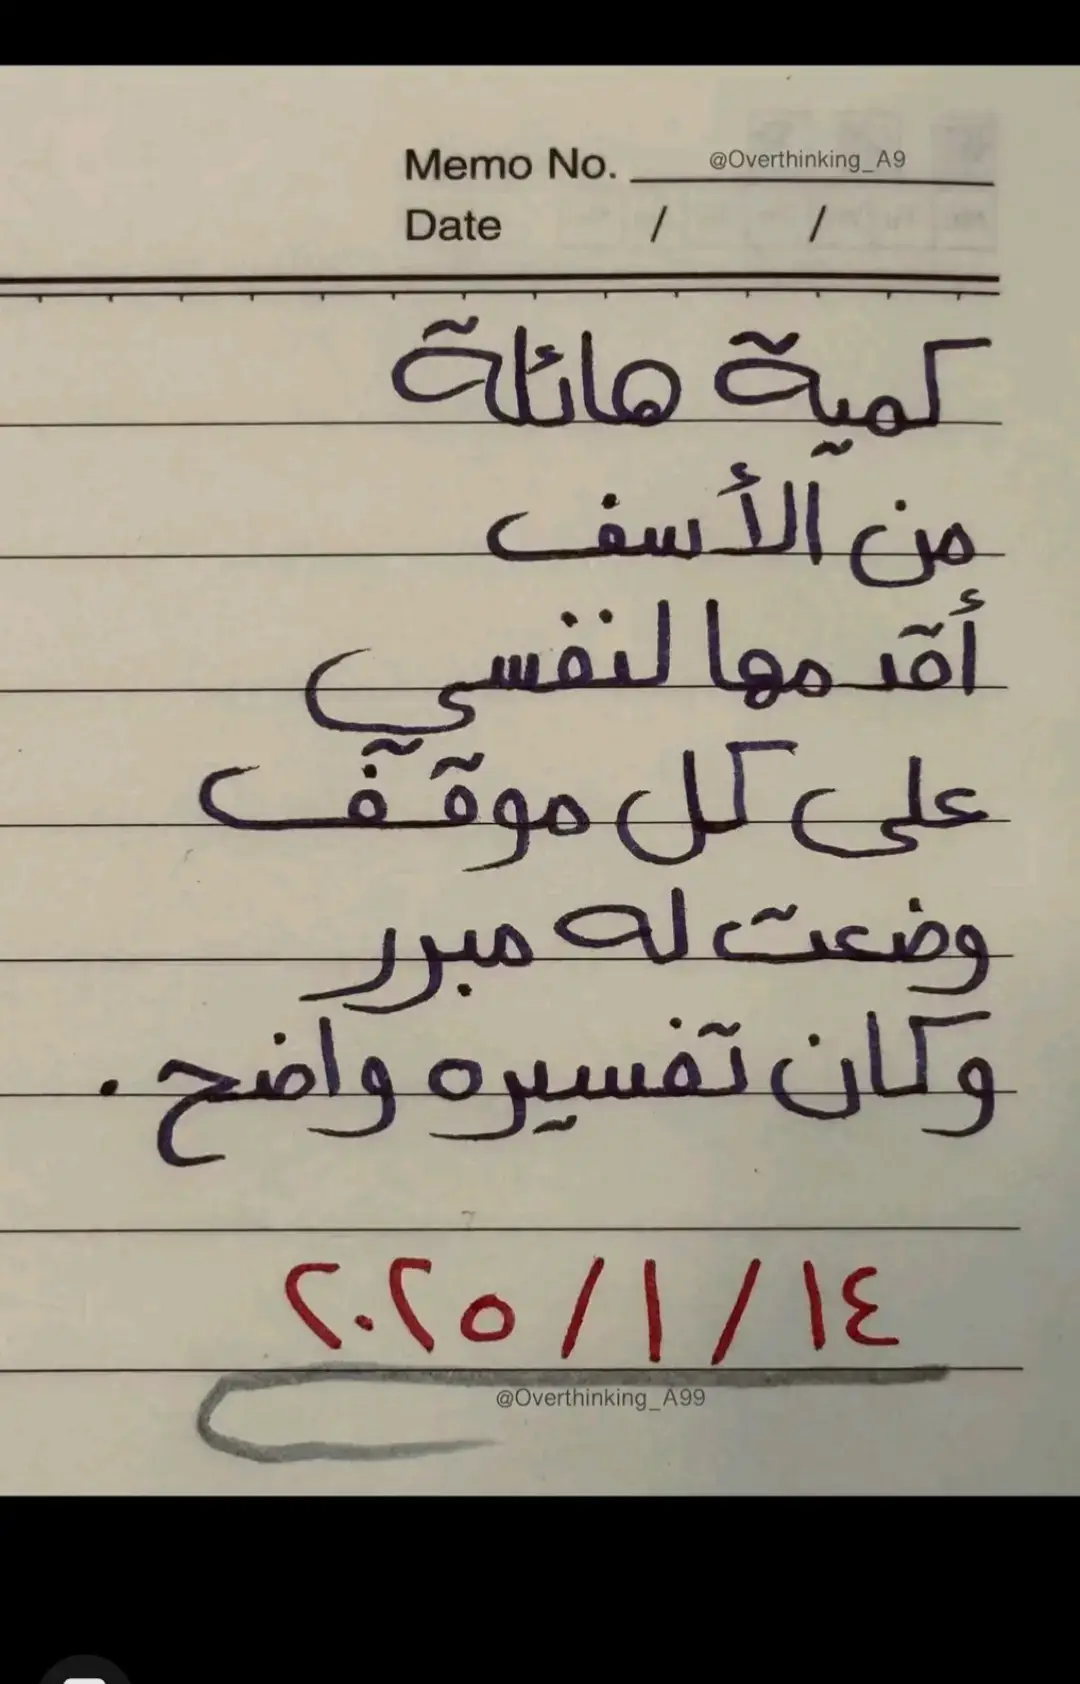 Memo No. @Overthinking_A9
Date / /
كمية هائلة
من الأسف
أقدمها لنفسي
على كل موقف
وضعت له مبرر
وكان تفسيره واضح .
١٤ / ١ / ٢٠٢٥
@Overthinking_A99